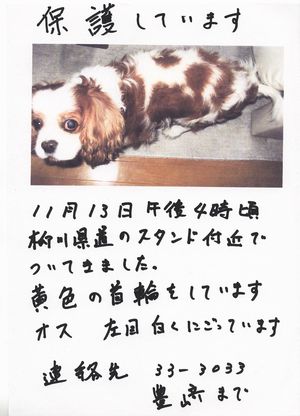 保護しています
11月13日午後4時頃
柳川県道のスタンド付近で
ついてきました。
黄色の首輪をしています
オス 左目白くにごっています
連絡先 33-3033
豊崎まで